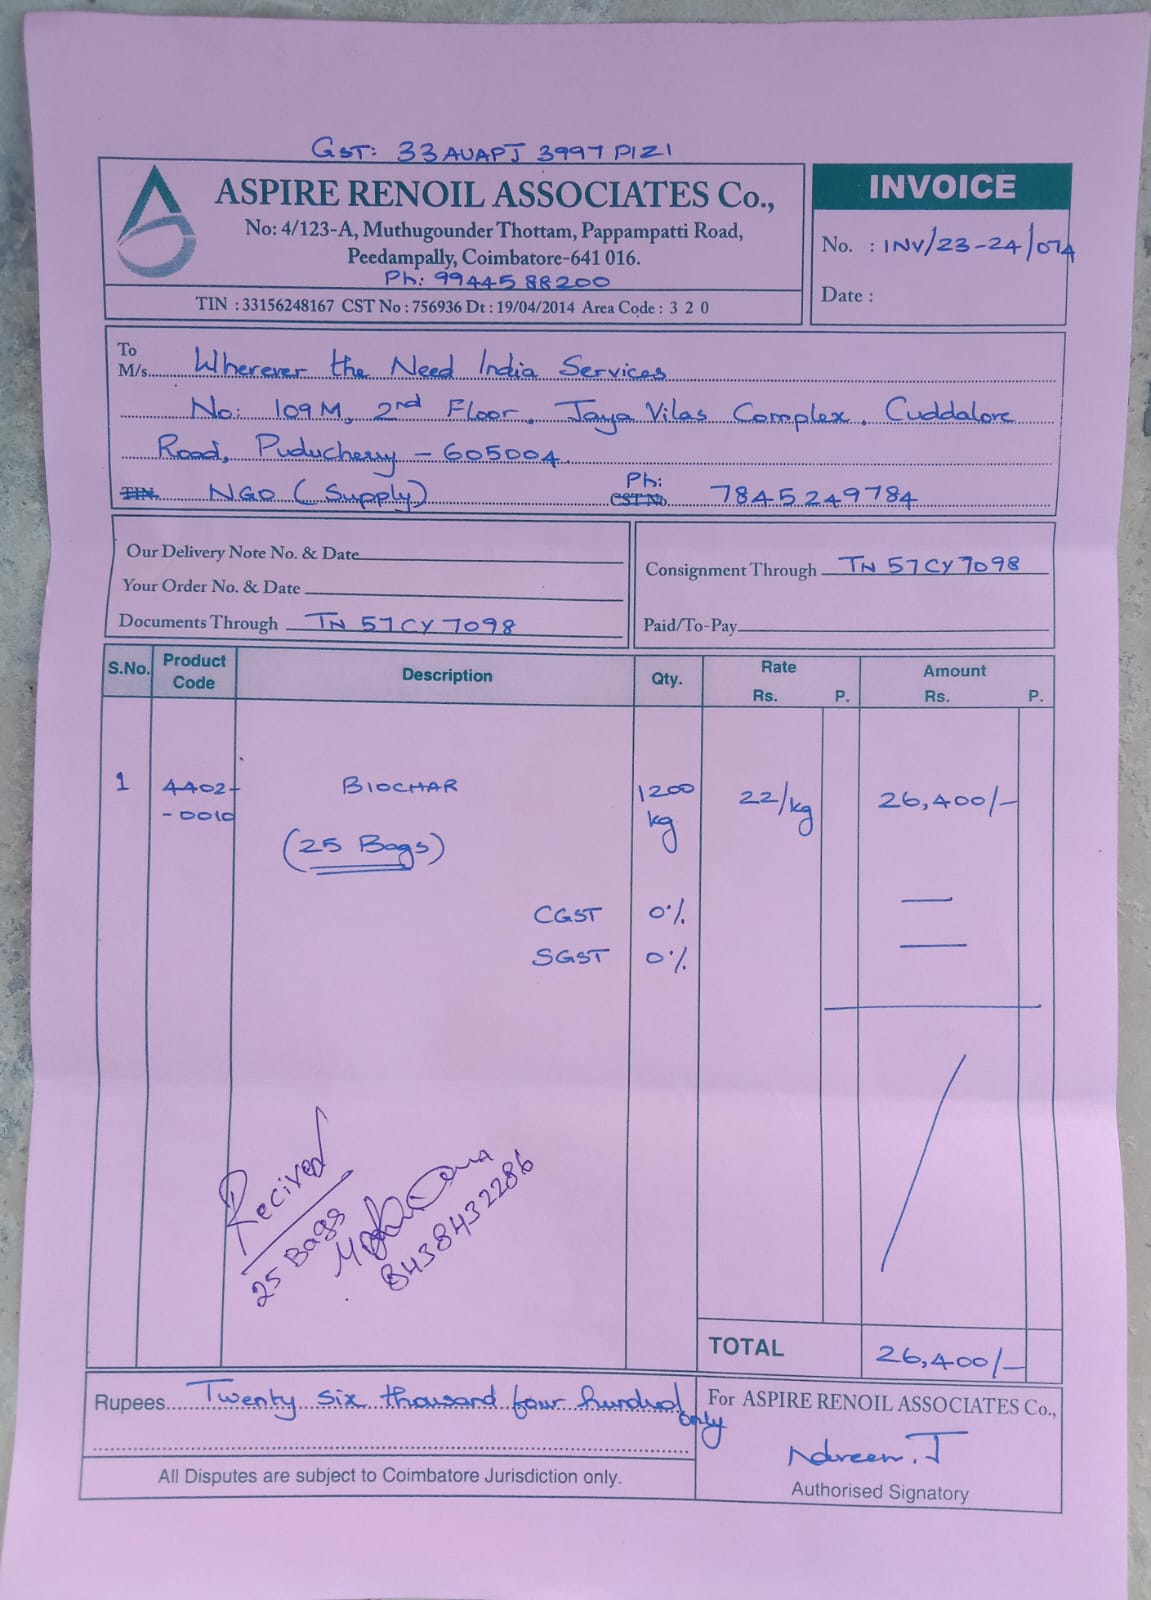 GST: 33 AUAPJ 3997 P1Z1
ASPIRE RENOIL ASSOCIATES Co.,
No: 4/123-A, Muthugounder Thottam, Pappampatti Road,
Peedampally, Coimbatore-641 016.
Ph: 99445 88200
TIN : 33156248167 CST No : 756936 Dt : 19/04/2014 Area Code : 3 2 0
INVOICE
No. : INV/23-24/074
Date :
To
M/s. Wherever the Need India Services
No: 109M, 2nd Floor, Jaya Vilas Complex, Cuddalore
Road, Puducherry - 605004.
TIN. NGO (Supply) Ph: CST No. 7845249784
Our Delivery Note No. & Date
Your Order No. & Date
Documents Through TN 57 CY 7098
Consignment Through TN 57 CY 7098
Paid/To-Pay
S.No. Product Code Description Qty. Rate Rs. P. Amount Rs. P.
1 4402- BIOCHAR 1200 22/kg 26,400/-
-0010 kg
(25 Bags)
CGST 0% —
SGST 0% —
Recived
25 Bags
8438432286
TOTAL 26,400/-
Rupees Twenty six thousand four hundred only
All Disputes are subject to Coimbatore Jurisdiction only.
For ASPIRE RENOIL ASSOCIATES Co.,
Authorised Signatory